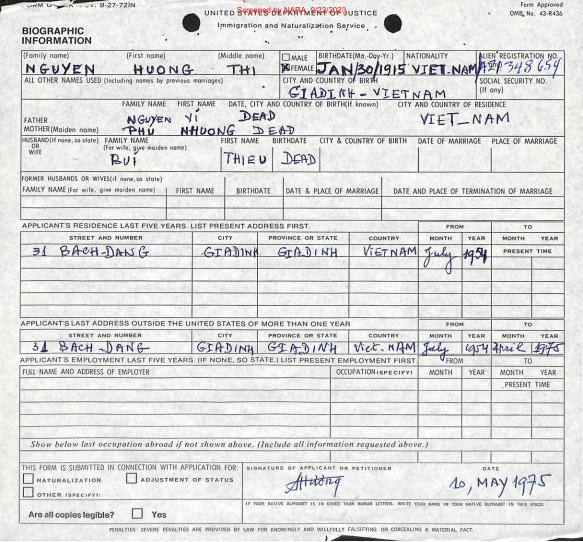 8-27-72)N
UNITED STATES DEPARTMENT OF JUSTICE
Screened by NARA, 9/22/2023
Immigration and Naturalization Service
Form Approved
OMB. No. 43-R436
BIOGRAPHIC
INFORMATION
(Family name) (First name) (Middle name) MALE BIRTHDATE(Mo.-Day-Yr.) NATIONALITY ALIEN REGISTRATION NO.
NGUYEN HUONG THI X FEMALE JAN/30/1915 VIET.NAM
ALL OTHER NAMES USED (Including names by previous marriages) CITY AND COUNTRY OF BIRTH SOCIAL SECURITY NO.
(If any)
GIADINH - VIETNAM
FAMILY NAME FIRST NAME DATE, CITY AND COUNTRY OF BIRTH(If known) CITY AND COUNTRY OF RESIDENCE
FATHER NGUYEN VI DEAD VIET_NAM
MOTHER(Maiden name) PHU NHUONG DEAD
HUSBAND(If none, so state) FAMILY NAME FIRST NAME BIRTHDATE CITY & COUNTRY OF BIRTH DATE OF MARRIAGE PLACE OF MARRIAGE
OR (For wife, give maiden name)
WIFE BUI THIEU DEAD
FORMER HUSBANDS OR WIVES(if none, so state)
FAMILY NAME (For wife, give maiden name) FIRST NAME BIRTHDATE DATE & PLACE OF MARRIAGE DATE AND PLACE OF TERMINATION OF MARRIAGE
APPLICANT'S RESIDENCE LAST FIVE YEARS. LIST PRESENT ADDRESS FIRST. FROM TO
STREET AND NUMBER CITY PROVINCE OR STATE COUNTRY MONTH YEAR MONTH YEAR
31 BACH-DANG GIADINH GIADINH VIETNAM July 1954 PRESENT TIME
APPLICANT'S LAST ADDRESS OUTSIDE THE UNITED STATES OF MORE THAN ONE YEAR FROM TO
STREET AND NUMBER CITY PROVINCE OR STATE COUNTRY MONTH YEAR MONTH YEAR
31 BACH-DANG GIADINH GIADINH Viet.NAM July 1954 April 1975
APPLICANT'S EMPLOYMENT LAST FIVE YEARS. (IF NONE, SO STATE.) LIST PRESENT EMPLOYMENT FIRST. FROM TO
FULL NAME AND ADDRESS OF EMPLOYER OCCUPATION(SPECIFY) MONTH YEAR MONTH YEAR
PRESENT TIME
Show below last occupation abroad if not shown above. (Include all information requested above.)
THIS FORM IS SUBMITTED IN CONNECTION WITH APPLICATION FOR: SIGNATURE OF APPLICANT OR PETITIONER DATE
NATURALIZATION ADJUSTMENT OF STATUS
OTHER (SPECIFY):
10, MAY 1975
IF YOUR NATIVE ALPHABET IS IN OTHER THAN ROMAN LETTERS, WRITE YOUR NAME IN YOUR NATIVE ALPHABET IN THIS SPACE:
Are all copies legible? Yes
PENALTIES: SEVERE PENALTIES ARE PROVIDED BY LAW FOR KNOWINGLY AND WILLFULLY FALSIFYING OR CONCEALING A MATERIAL FACT.